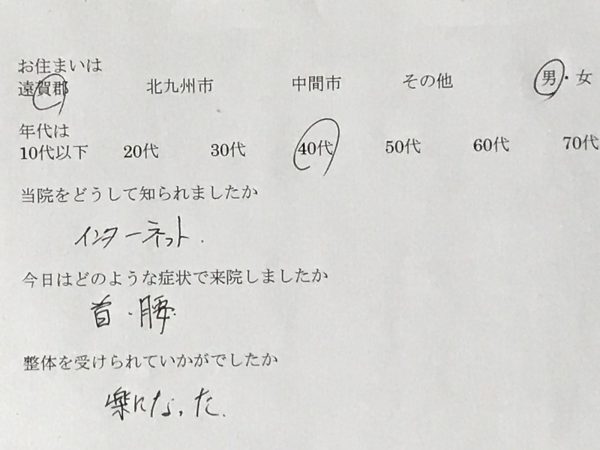 お住まいは
遠賀郡 北九州市 中間市 その他 男・女
年代は
10代以下 20代 30代 40代 50代 60代 70代
当院をどうして知られましたか
インターネット.
今日はどのような症状で来院しましたか
首・腰
整体を受けられていかがでしたか
楽になった.